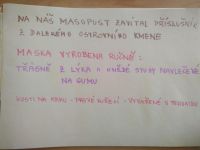 NA NÁŠ MASOPUST ZAVÍTAL PŘÍSLUŠNÍK
Z DALEKÉHO OSTROVNÍHO KMENE
MASKA VYROBENA RUČNĚ:
TŘÁSNĚ Z LÝKA A HNĚDÉ STUHY NAVLEČENÉ
NA GUMU
KOSTI NA KRKU - PRAVÉ KUŘECÍ - VYVAŘENÉ S